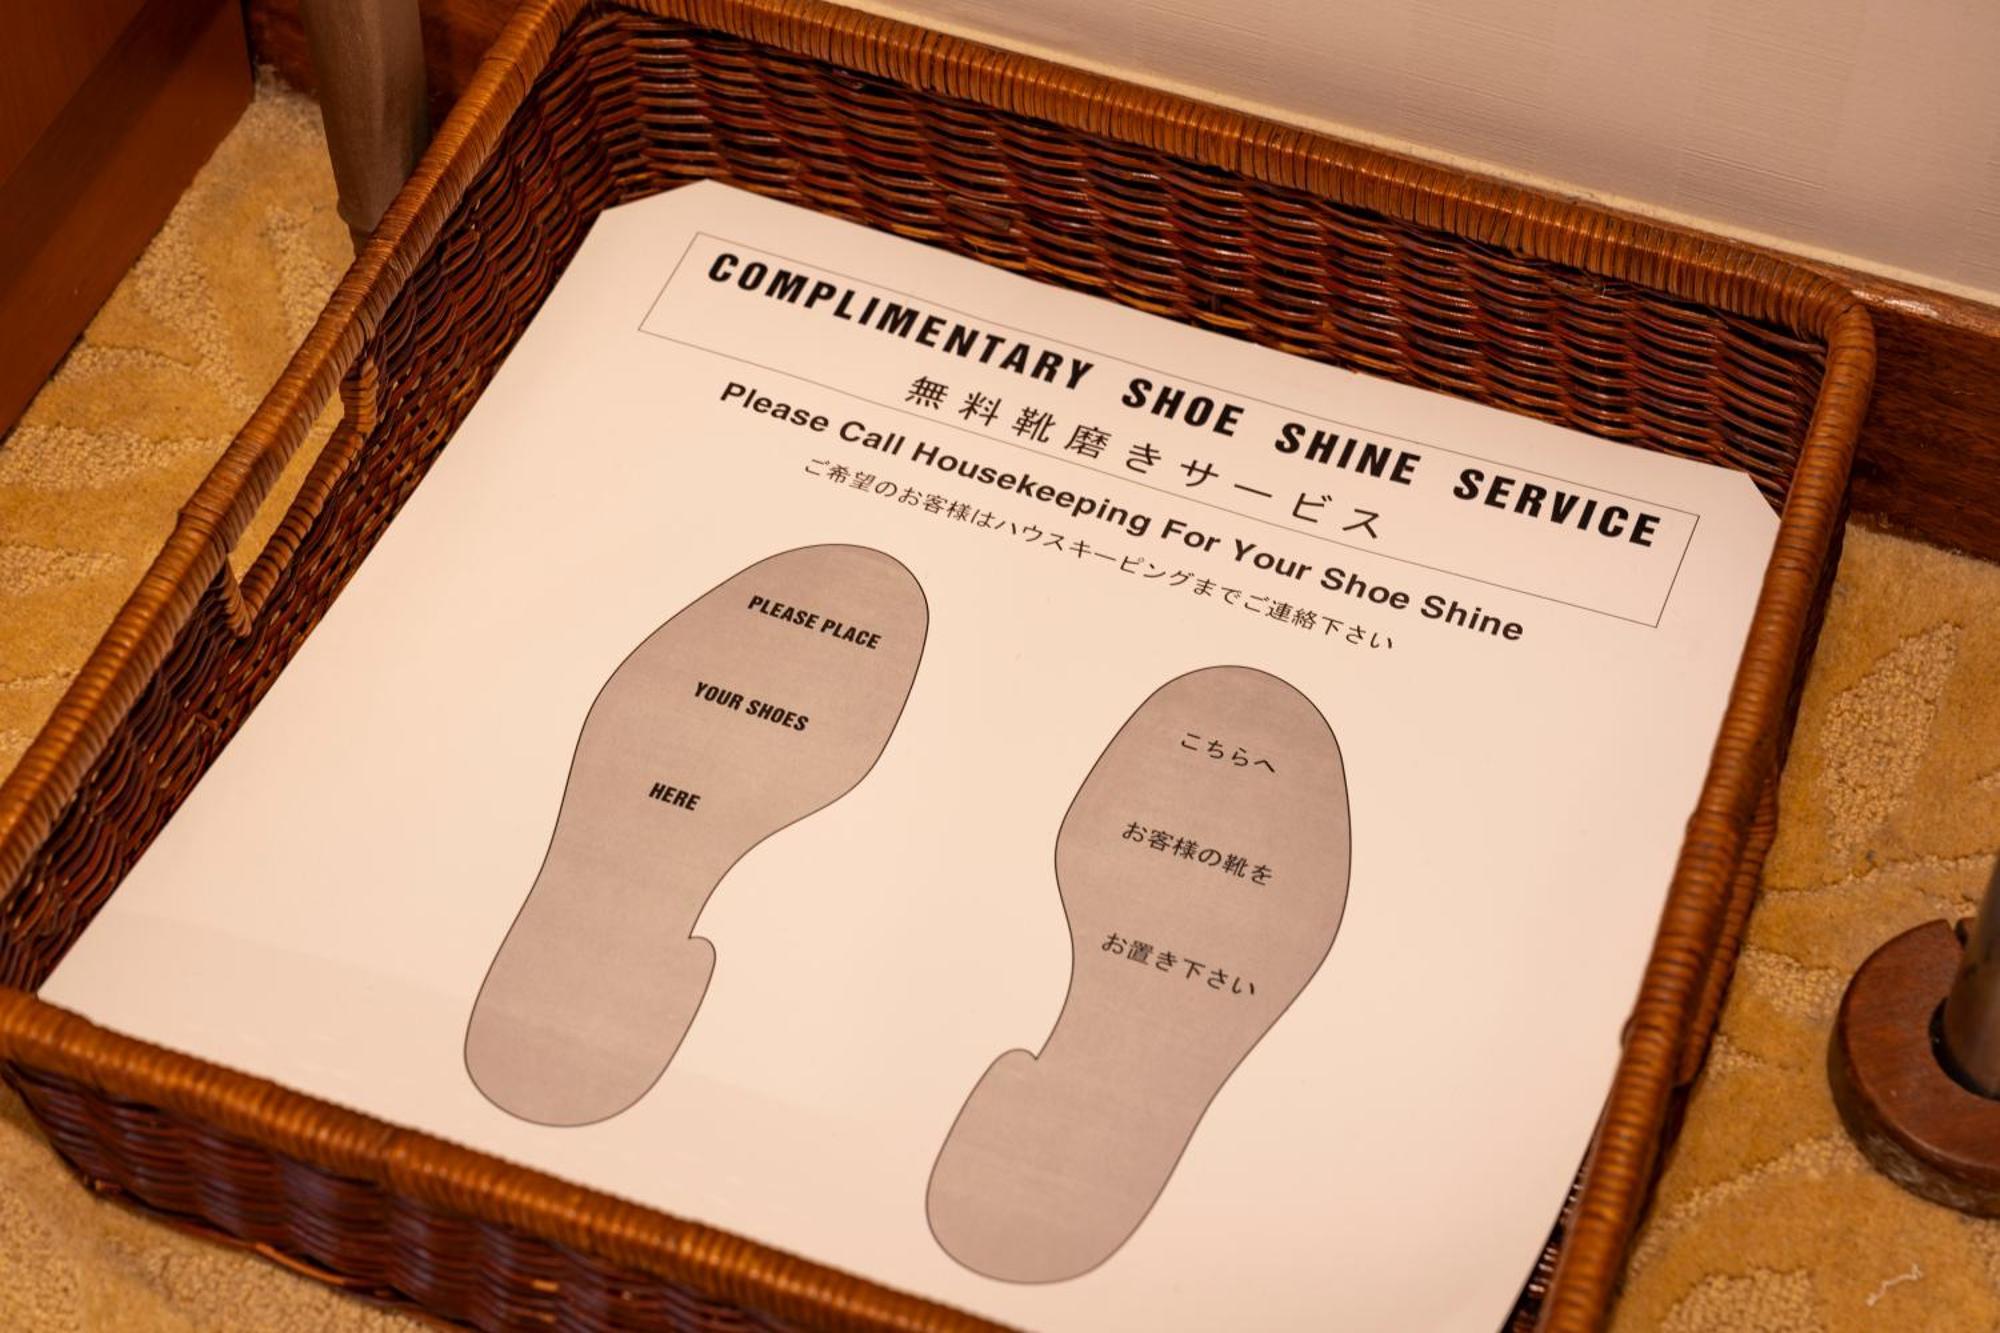 COMPLIMENTARY SHOE SHINE SERVICE
無料靴磨きサービス
Please Call Housekeeping For Your Shoe Shine
ご希望のお客様はハウスキーピングまでご連絡下さい
PLEASE PLACE
YOUR SHOES
HERE
こちらへ
お客様の靴を
お置き下さい